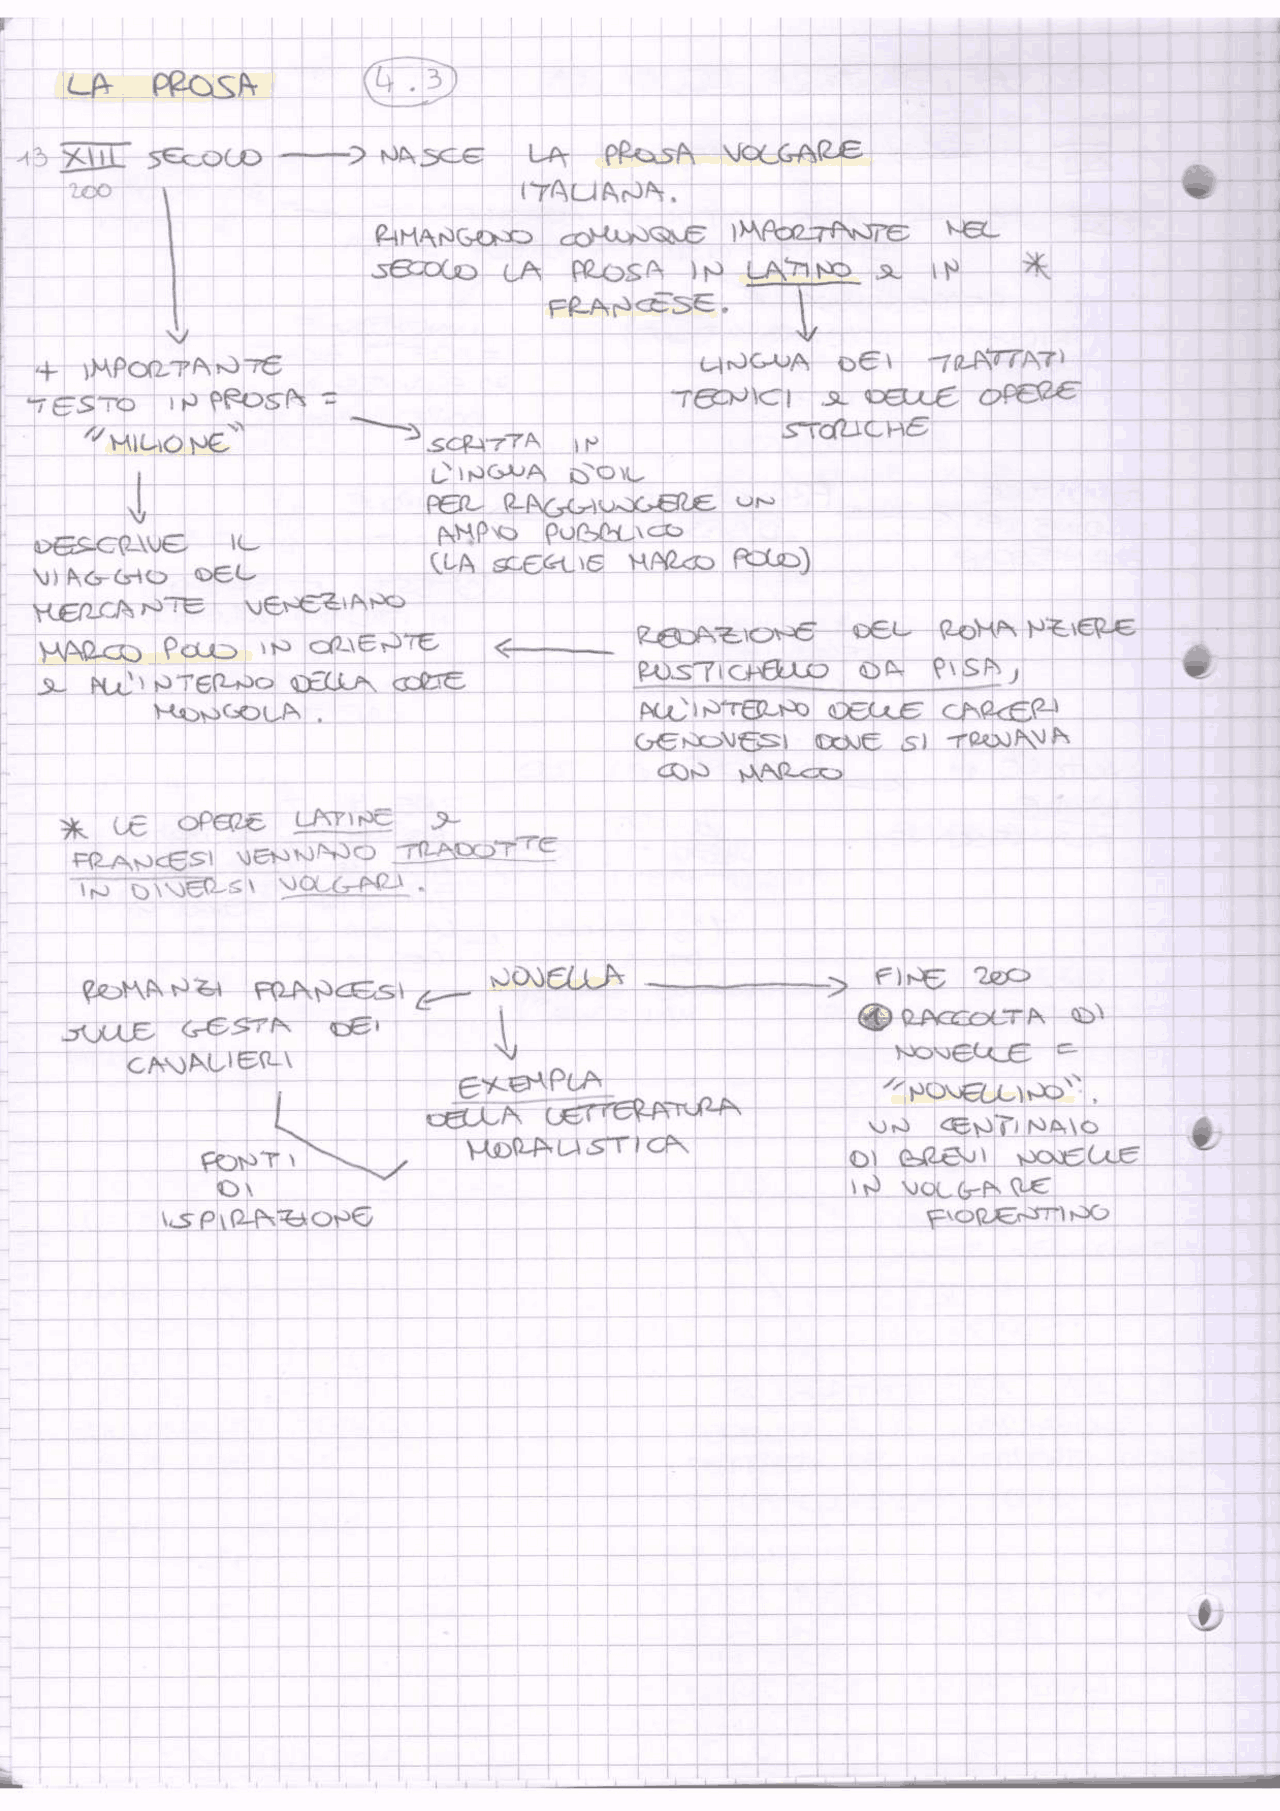 LA PROSA 4.3
13 XIII SECOLO → NASCE LA PROSA VOLGARE
200
ITALIANA.
RIMANGONO COMUNQUE IMPORTANTE NEL
SECOLO LA PROSA IN LATINO e IN *
FRANCESE.
LINGUA DEI TRATTATI
TECNICI e DELLE OPERE
STORICHE
+ IMPORTANTE
TESTO IN PROSA =
"MILIONE"
SCRITTA IN
L'INGUA D'OIL
PER RAGGIUNGERE UN
AMPIO PUBBLICO
(LA SCEGLIE MARCO POLO)
DESCRIVE IL
VIAGGIO DEL
MERCANTE VENEZIANO
MARCO POLO IN ORIENTE
e ALL'INTERNO DELLA CORTE
MONGOLA.
REDAZIONE DEL ROMANZIERE
RUSTICHELLO DA PISA,
ALL'INTERNO DELLE CARCERI
GENOVESI DOVE SI TROVAVA
CON MARCO
* LE OPERE LATINE e
FRANCESI VENNANO TRADOTTE
IN DIVERSI VOLGARI.
ROMANZI FRANCESI ← NOVELLA → FINE 200
SULLE GESTA DEI
CAVALIERI
EXEMPLA
DELLA LETTERATURA
MORALISTICA
FONTI
DI
ISPIRAZIONE
RACCOLTA DI
NOVELLE =
"NOVELLINO".
UN CENTINAIO
DI BREVI NOVELLE
IN VOLGARE
FIORENTINO